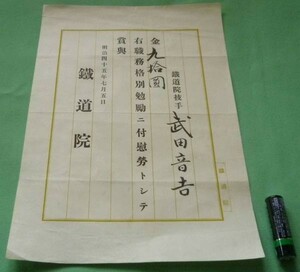 鐵道院技手 武田音吉
金九拾圓
右職務格別勉勵ニ付慰勞トシテ
賞與
明治四十五年七月五日
鐵道院